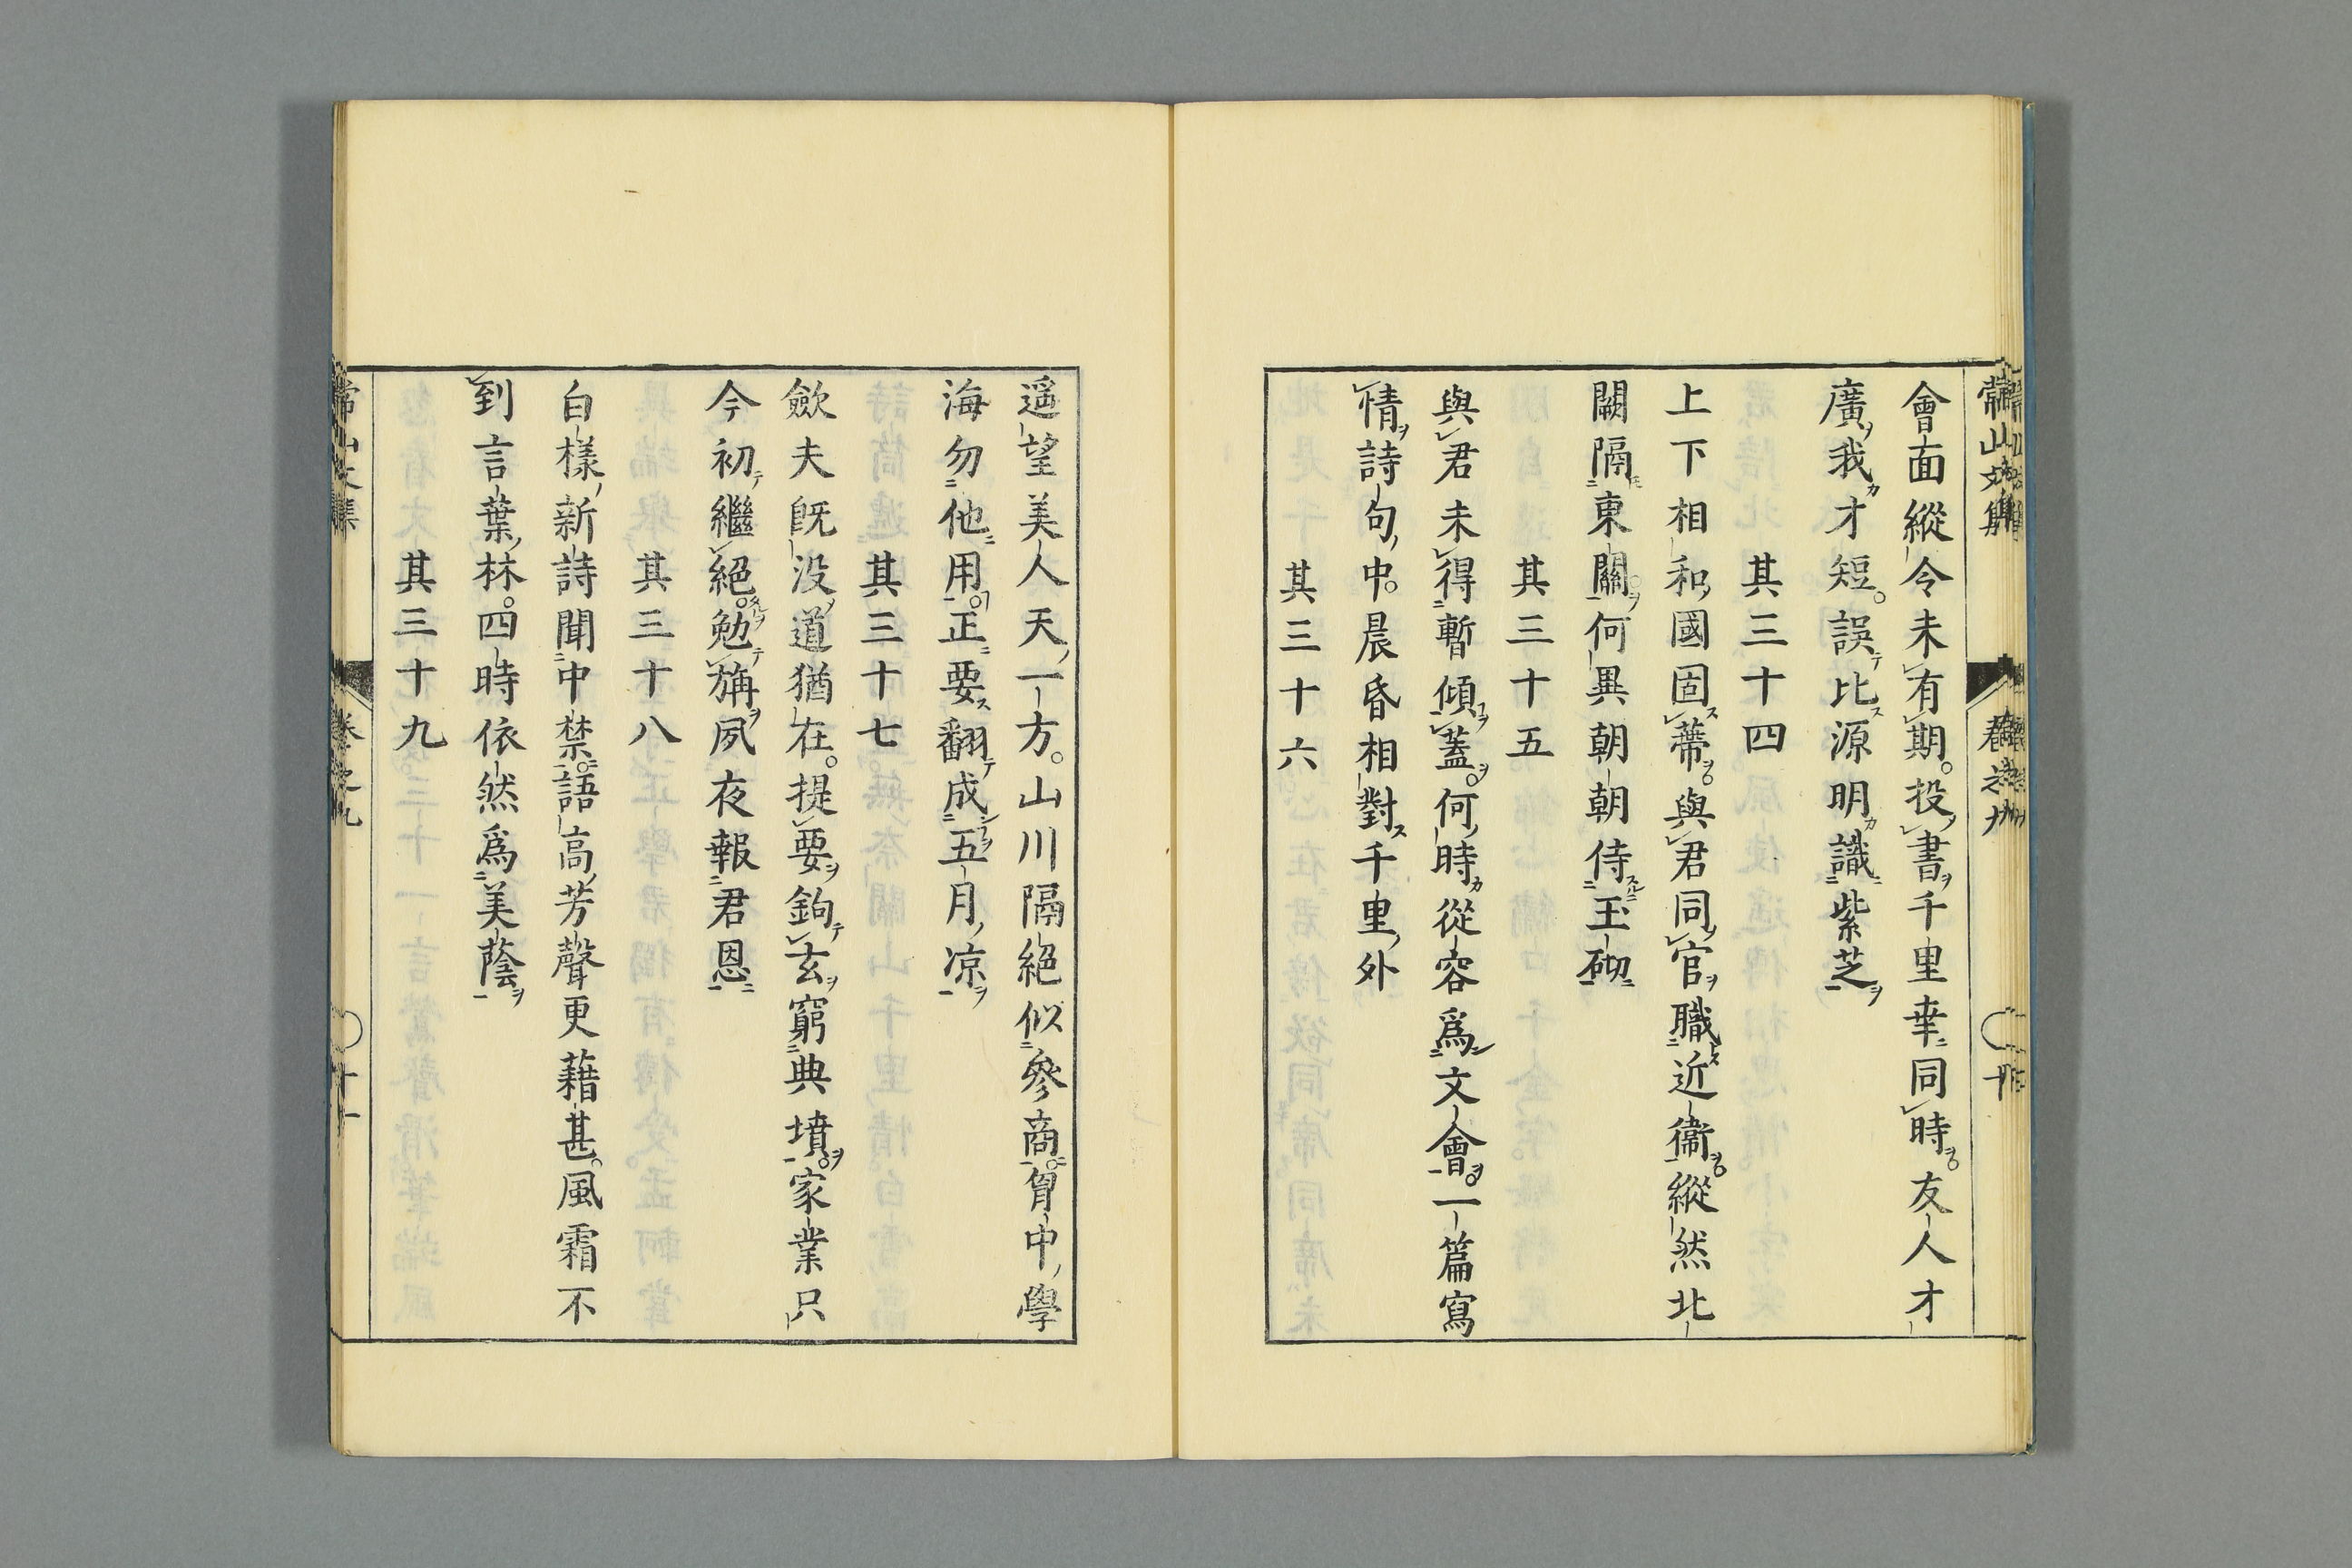 會面縱令未有期。投書千里幸同時。友人才
廣我才短。誤比源明識紫芝
其三十四
上下相和國固蔕。與君同官職近衞。縱然北
闕隔東關。何異朝朝侍玉砌
其三十五
與君未得暫傾蓋。何時從容爲文會。一篇寫
情詩句中。晨昏相對千里外
其三十六
遥望美人天一方。山川隔絕似參商。胷中學
海勿他用。正要翻成五月凉
其三十七
歛夫既没道猶在。提要鉤玄窮典墳。家業只
今初繼絕。勉旃夙夜報君恩
其三十八
白樣新詩聞中禁。語高芳聲更藉甚。風霜不
到言葉林。四時依然爲美蔭
其三十九
常山文集 卷之九 十一